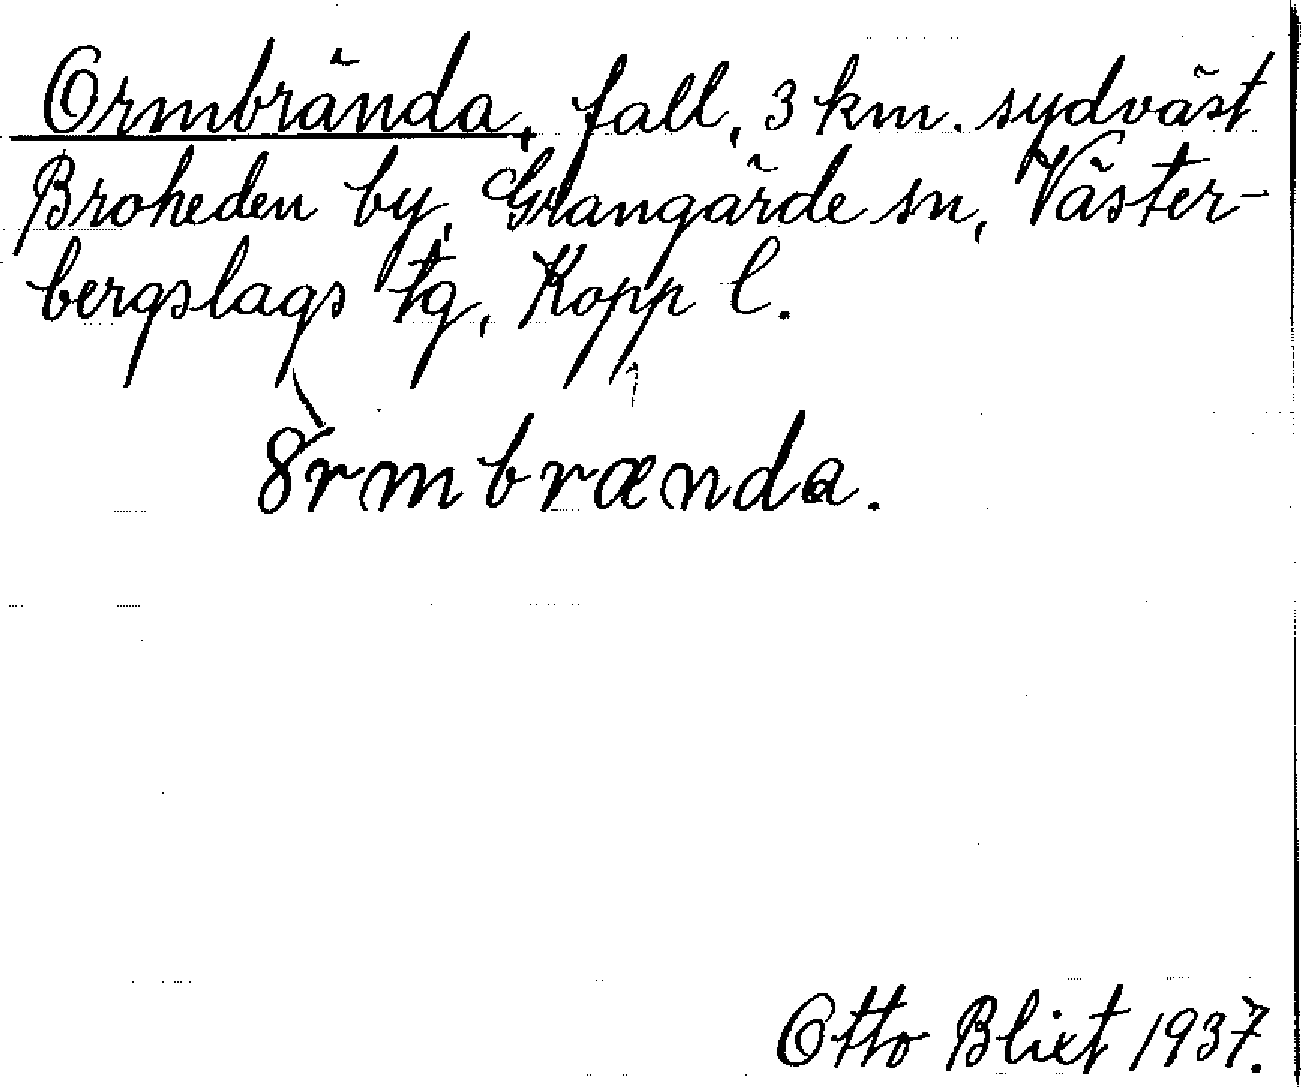 Ormbrända, fall, 3 km. sydväst
Broheden by, Grangärde sn, Väster-
bergslags tg, Kopp l.
8rmbrænda.
Otto Blixt 1937.